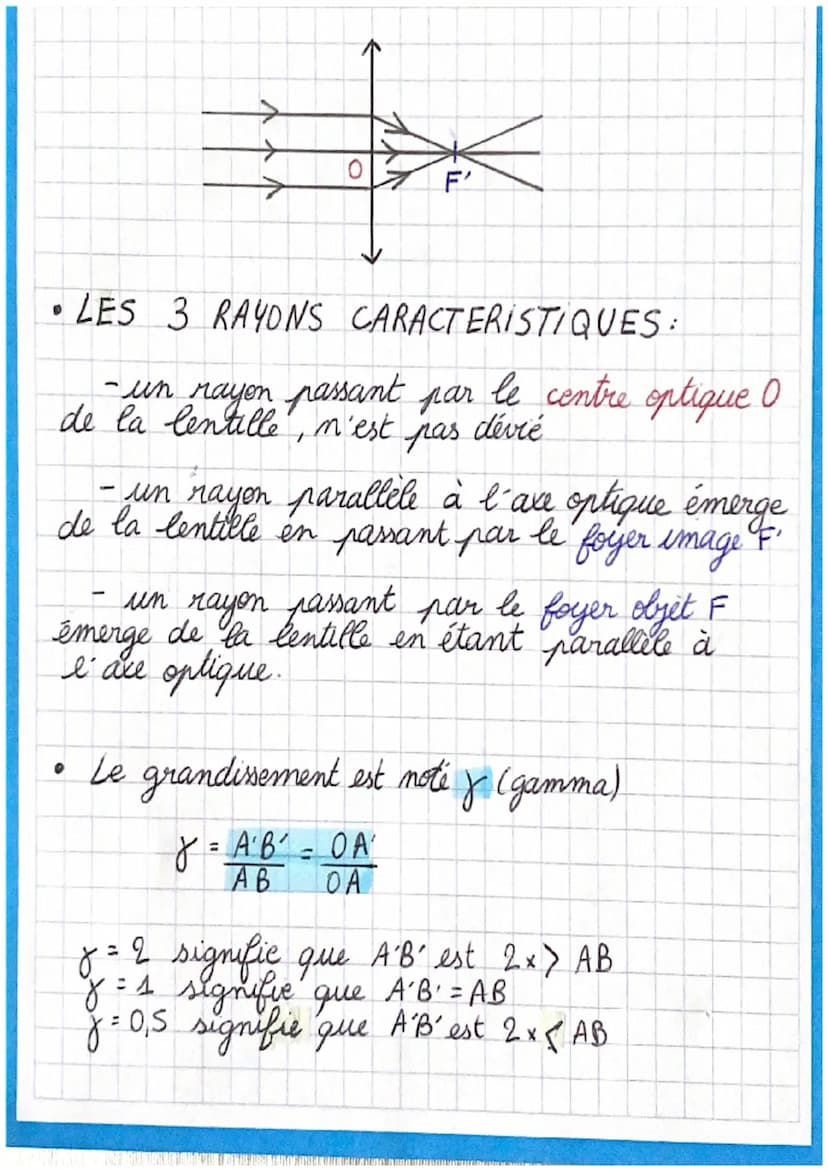 O
F'
• LES 3 RAYONS CARACTERISTIQUES :
- un rayon passant par le centre optique O
de la lentille, n'est pas dévié
- un rayon parallèle à l'axe optique émerge
de la lentille en passant par le foyer image F'
- un rayon passant par le foyer objet F
émerge de la lentille en étant parallèle à
l'axe optique.
• Le grandissement est noté γ (gamma)
γ = A'B' / AB = OA' / OA
γ = 2 signifie que A'B' est 2x > AB
γ = 1 signifie que A'B' = AB
γ = 0,5 signifie que A'B' est 2x < AB